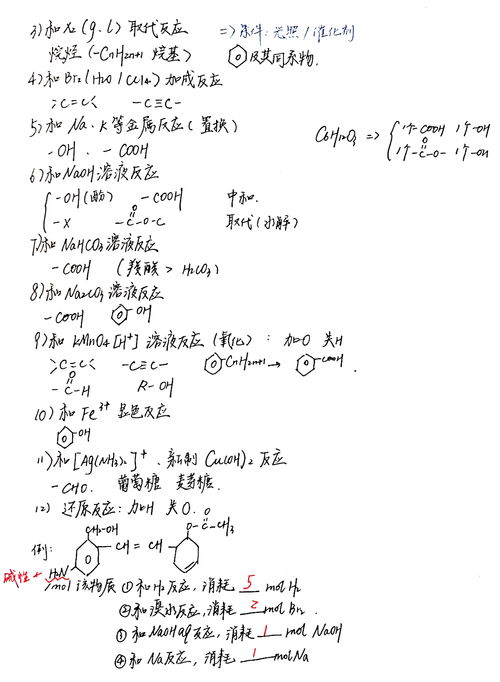 3) 和X₂(g.l) 取代反应 => 条件:光照/催化剂
烷烃(-CnH2n+1 烷基) 及其同系物.
4) 和Br₂(H₂O/CCl₄)加成反应
>C=C< -C≡C-
5) 和Na.K等金属反应(置换)
-OH . -COOH
C6H12O3 => { 1个-COOH 1个-OH
1个-C-O- 1个-OH
O
6) 和NaOH溶液反应
-OH(酚) -COOH 中和.
-X -C-O-C 取代(水解)
O
7) 和NaHCO₃溶液反应
-COOH (羧酸 > H₂CO₃)
8) 和Na₂CO₃溶液反应
-COOH -OH
9) 和KMnO₄[H⁺]溶液反应(氧化): 加O 失H
>C=C< -C≡C- CnH2n+1 → COOH .
O
-C-H R-OH
10) 和Fe³⁺显色反应
-OH
11) 和[Ag(NH₃)₂]⁺、新制Cu(OH)₂反应
-CHO. 葡萄糖 麦芽糖.
12) 还原反应: 加H 失O.
O
CH₂-OH O-C-CH₃
例: -CH=CH-
碱性← H₂N
1mol该物质 ①和H₂反应,消耗 5 mol H₂
②和溴水反应,消耗 2 mol Br₂ .
③和NaOHaq反应,消耗 1 mol NaOH
④和Na反应,消耗 1 mol Na